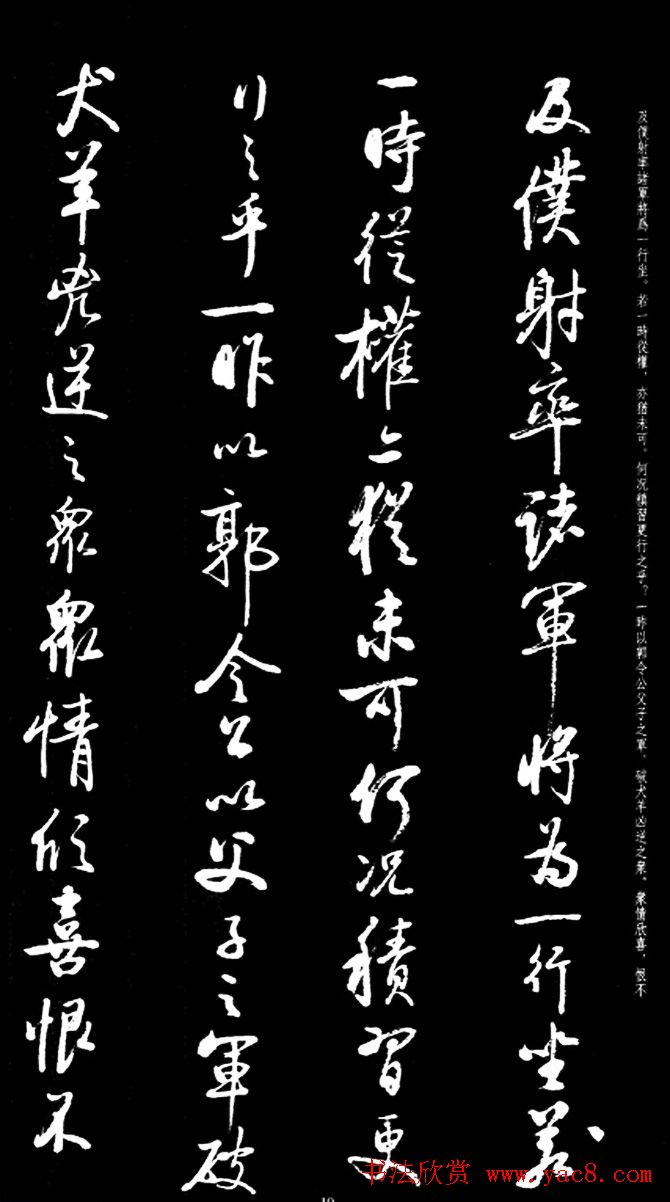 及僕射率諸軍將爲一行坐。若一時從權，亦猶未可。何況積習更行之乎？一昨以郭令公父子之軍，破犬羊凶逆之衆，衆情欣喜，恨不
及僕射率諸軍將為一行坐若
一時從權亦猶未可何況積習更
行之乎一昨以郭令公以父子之軍破
犬羊兇逆之衆衆情欣喜恨不
书法欣赏 www.yac8.com